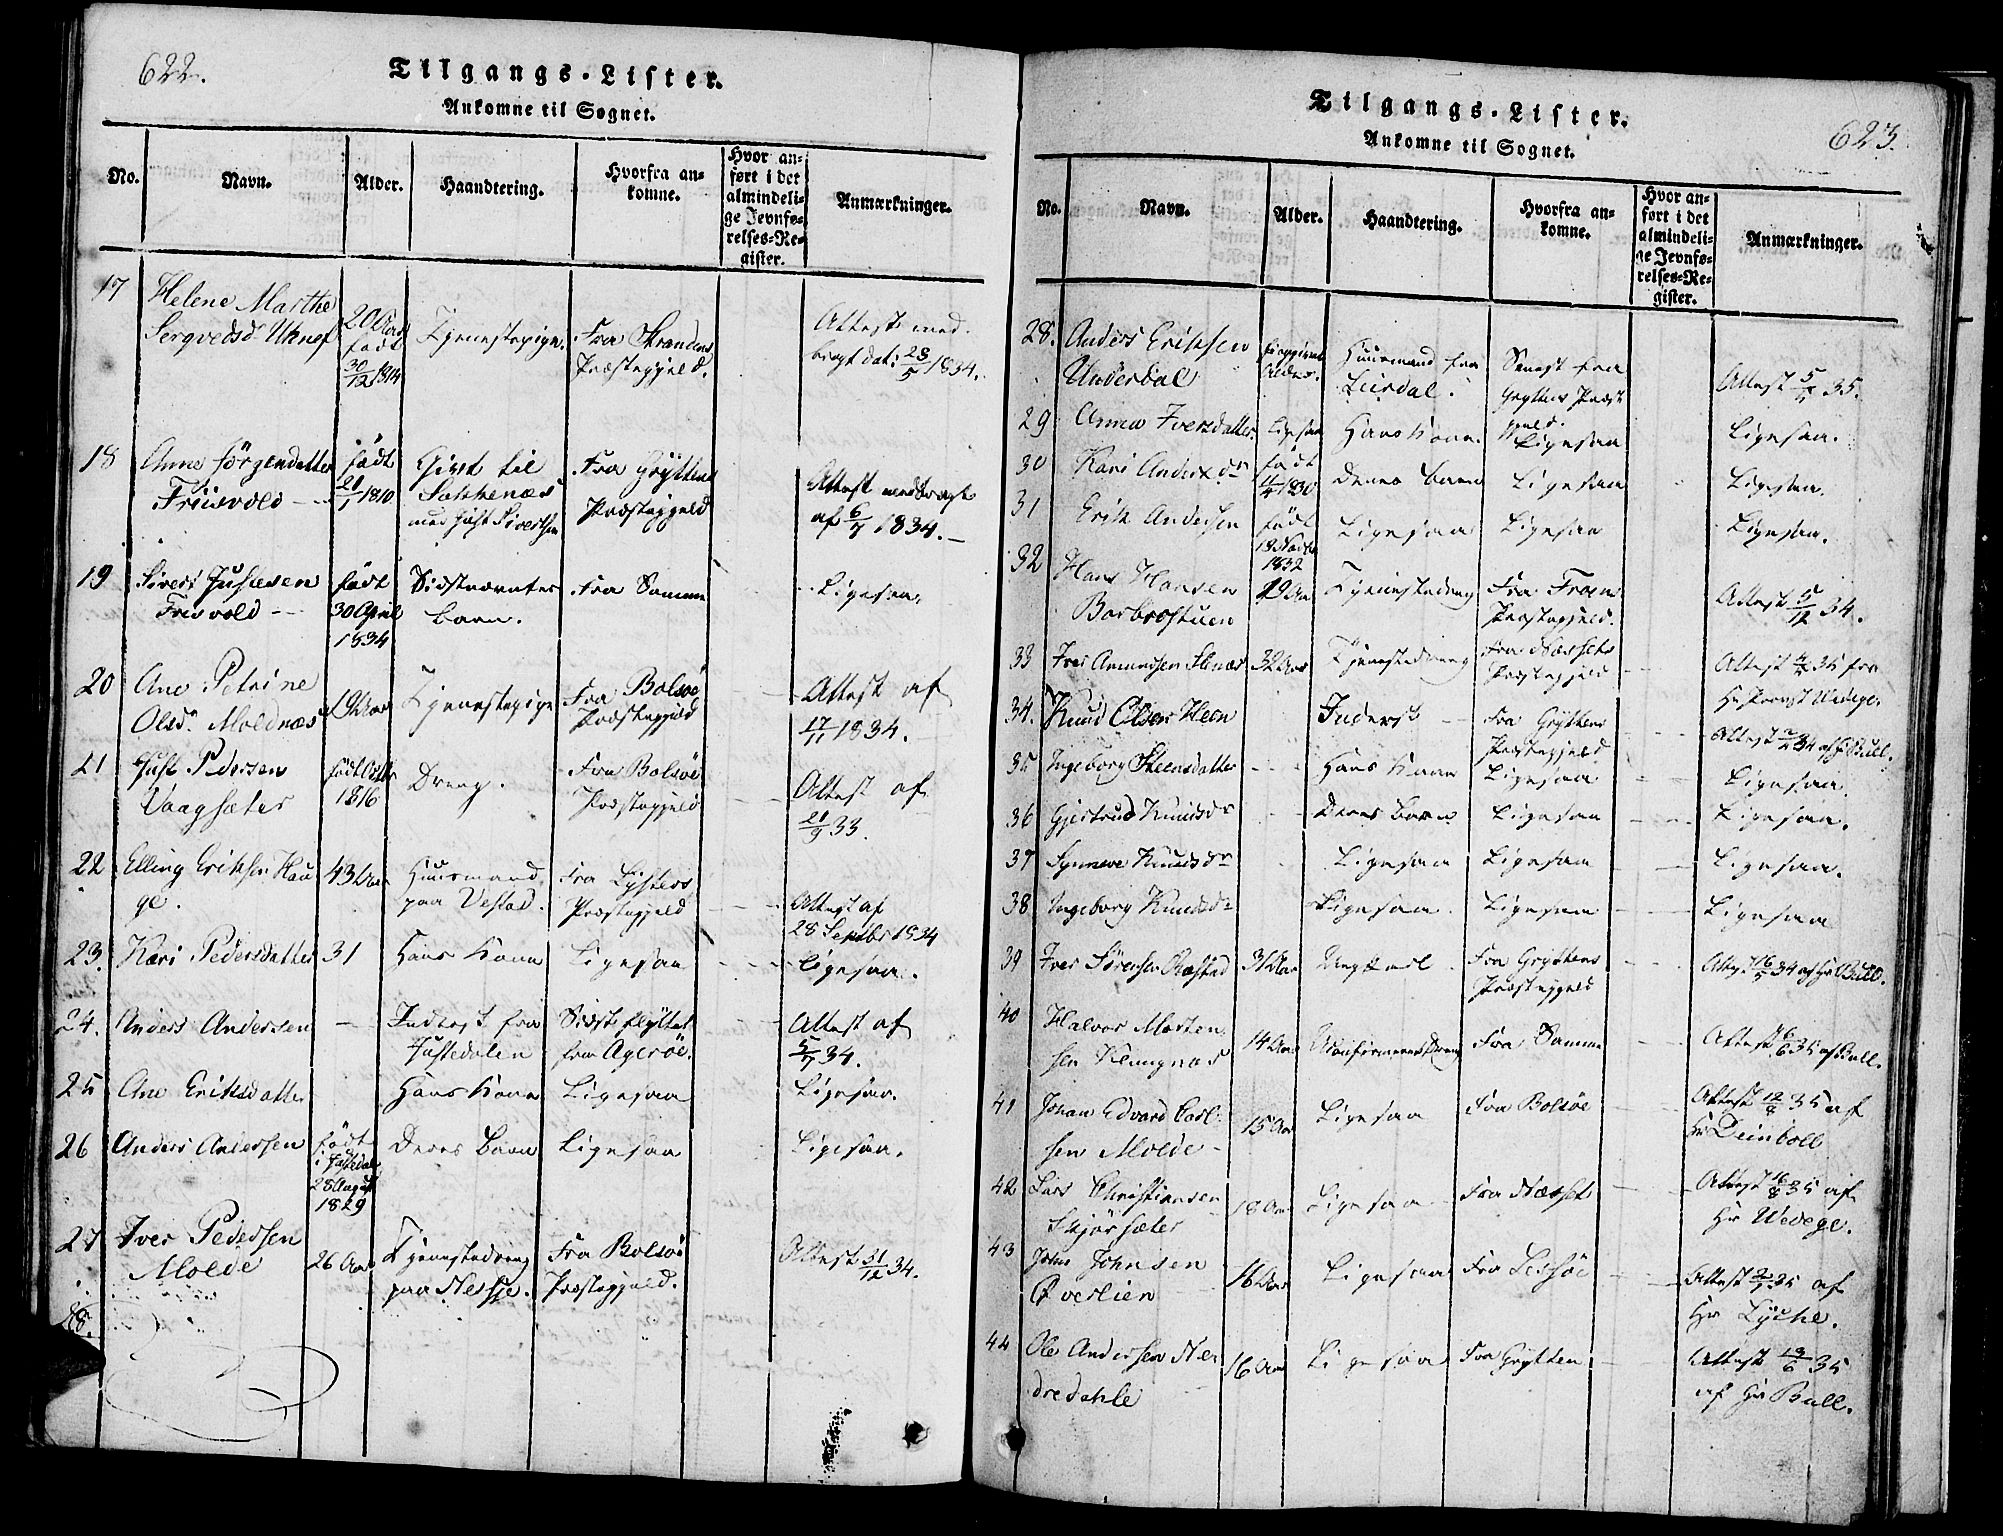 622.
Tilgangs-Lister.
Ankomne til Sognet.
No. Navn. Alder. Haandtering. Hvorfra an-
komne. Hvor an-
ført i det
almindeli-
ge Jevnfø-
relses-Re-
gister. Anmærkninger.
17 Helene Marthe 20 Aar Tjenestepige. Fra Strandens Attest med-
født Præstegjeld. bragt dat. 28/5 1834.
30/12
18 Anne Jørgensdatter født Givt til Fra Gryttens Attest medbragt
Friisvold 21/1 1810 Præstegjeld af 6/7 1834.
19 Sivert Justesen født Sidstnævntes Fra Samme Ligesaa.
Frisvold 30 April Barn.
1834
20 Ane Petrine 19 Aar Tjenestepige Fra Bolsøe Attest af
Olsdr Moldnæs Præstegjeld 17/11 1834.
21 Just Pedersen født Dreng. Fra Bolsøe Attest af
Vaagsæter 1816 Præstegjeld 21/9 33.
22 Elling Eriksen Hau 43 Aar Huusmand Fra Lysters Attest af
ge. paa Præstegjeld 28 Septbr 1834
23. Kari Pedersdatter 31 Hans Kone Ligesaa Ligesaa.
24. Anders Andersen Inderst fra Sidst flyttet Attest af
Justedalen fra Agerøe. 5/7 34.
25 Ane Eriksdatter Hans Kone Ligesaa Ligesaa.
26 Anders Andersen født Deres Barn Ligesaa Ligesaa.
i Justedal
28 August
1829
27 Iver Pedersen 26 Aar Tjenestedreng Fra Bolsøe Attest 31/12 34.
Molde paa Præstegjeld.
28.
Tilgangs-Lister.
Ankomne til Sognet.
623.
No. Navn. Alder. Haandtering. Hvorfra an-
komne. Hvor an-
ført i det
almindeli-
ge Jevnfø-
relses-Re-
gister. Anmærkninger.
28. Anders Eriksen Huusmand fra Senest fra
Underdal Alder. Leirdal. Gryttens Præste Attest 35.
gjeld.
29 Anna Iversdatter Ligesaa Hans Kone. Ligesaa Ligesaa.
30 Kari Andersdr født Deres Barn Ligesaa Ligesaa.
1830
31 Erik Andersen født Ligesaa Ligesaa Ligesaa.
1832
32 Hans Hansen Tjenestedreng Fra Froens Attest 5/12 34.
Barbrostuen Præstegjeld.
33 Iver Amundsen 32 Aar Tjenestedreng Fra Næssets Attest 35 fra
Præstegjeld Hr Provst Wedege.
34. Knud Olsen Heen Inderst Fra Gryttens Attest 34 af Bull.
Præstegjeld
35 Ingeborg Steensdatter Hans Kone Ligesaa Ligesaa.
36 Gjertrud Knudsdr Deres Barn Ligesaa Ligesaa.
37 Synneve Knudsdr Ligesaa Ligesaa Ligesaa.
38 Ingeborg Knudsdr Ligesaa. Ligesaa Ligesaa
39 Iver Sørensen 31 Aar Ungkarl. Fra Gryttens Attest 16/5 34 af Hr Bull.
Præstegjeld
40 Halvor Morten 14 Aar Fra Samme Attest 6/6 35 af Bull.
sen Klungnæs
41 Johan Edvard Carl- 15 Aar Ligesaa Fra Bolsøe Attest 12/8 35 af
sen Molde Hr Deinboll
42 Lars Christiansen 18 Aar Ligesaa Fra Næsset Attest 16/8 35 af
Skjørsæter Hr Wedege.
43 John Johnsen 16 Aar Ligesaa Fra Lessøe Attest 2/7 35 af
Øverlien Hr Lyche.
44 Ole Andersen Ne 16 Aar Ligesaa Fra Grytten Attest 19/6 35
dredahle af Hr Bull.